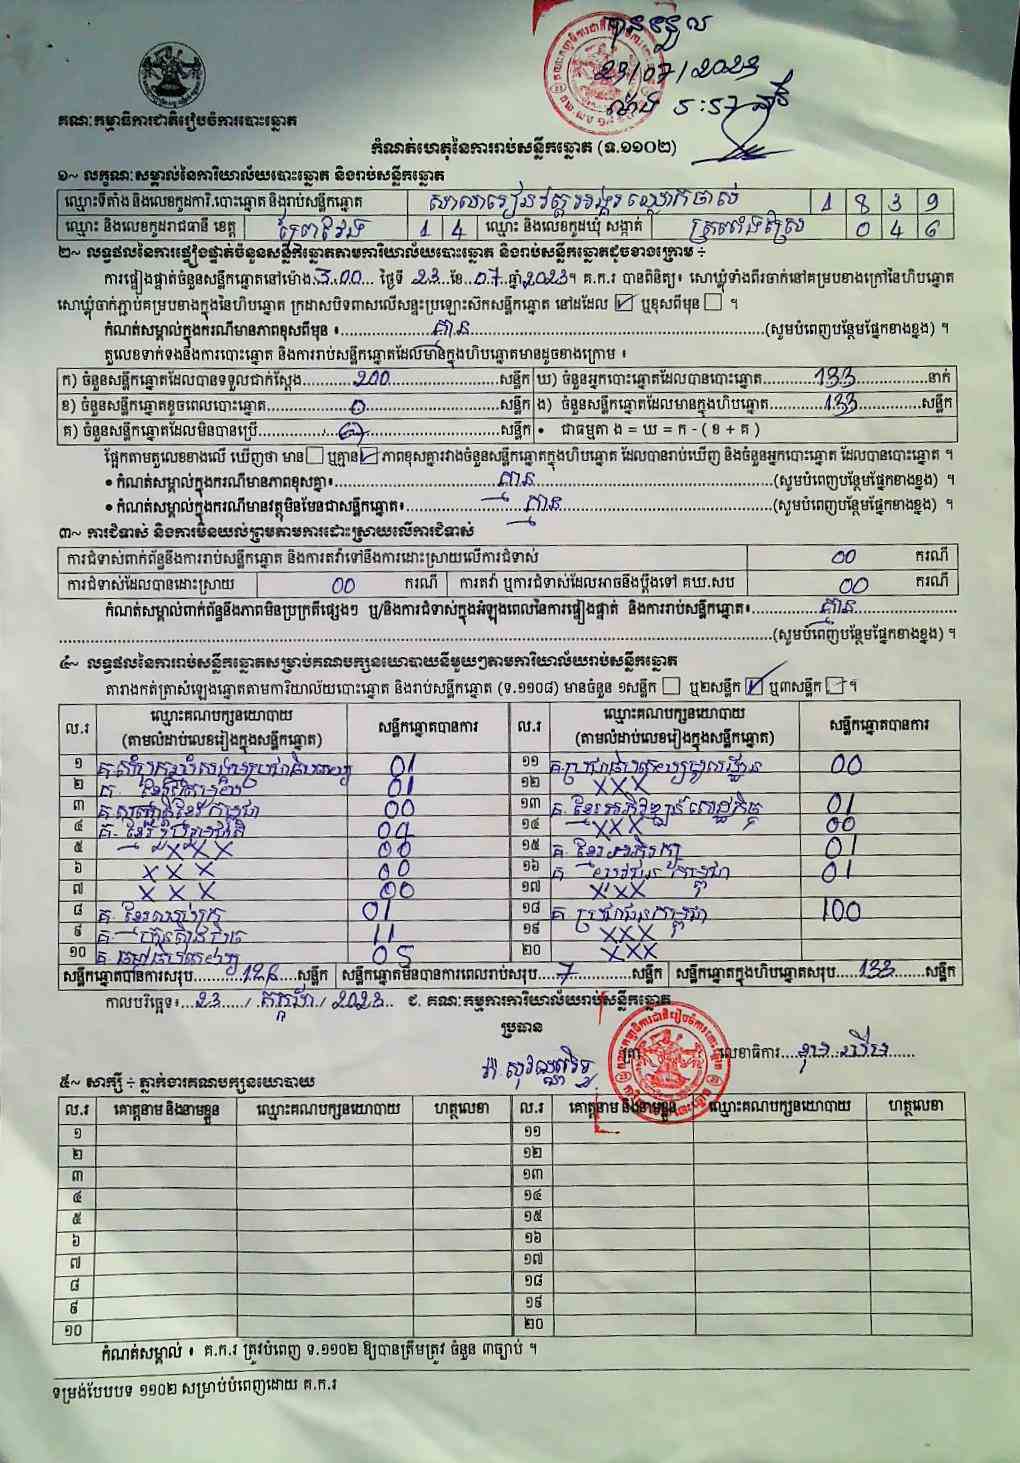 បានទទួល
23/07/2023
គណៈកម្មាធិការជាតិរៀបចំការបោះឆ្នោត
កំណត់ហេតុនៃការរាប់សន្លឹកឆ្នោត (ទ.១១០២)
១~ លក្ខណៈសម្គាល់នៃការិយាល័យបោះឆ្នោត និងរាប់សន្លឹកឆ្នោត
ឈ្មោះទីតាំង និងលេខកូដការិ.បោះឆ្នោត និងរាប់សន្លឹកឆ្នោត 1 8 3 9
ឈ្មោះ និងលេខកូដរាជធានី ខេត្ត ព្រៃវែង 1 4 ឈ្មោះ និងលេខកូដឃុំ សង្កាត់ 0 4 6
២~ លទ្ធផលនៃការផ្ទៀងផ្ទាត់ចំនួនសន្លឹកឆ្នោតតាមការិយាល័យបោះឆ្នោត និងរាប់សន្លឹកឆ្នោតដូចខាងក្រោម ÷
ការផ្ទៀងផ្ទាត់ចំនួនសន្លឹកឆ្នោតនៅម៉ោង 3.00 ថ្ងៃទី 23 ខែ 07 ឆ្នាំ 2023។ គ.ក.រ បានពិនិត្យ៖ សោឃ្លុំទាំងពីរចាក់នៅគម្របខាងក្រៅនៃហិបឆ្នោត
សោឃ្លុំចាក់ភ្ជាប់គម្របខាងក្នុងនៃហិបឆ្នោត ក្រដាសបិទពាសលើសន្ទះប្រឡោះស៊កសន្លឹកឆ្នោត នៅដដែល ☑ ឬខុសពីមុន ☐ ។
កំណត់សម្គាល់ក្នុងករណីមានភាពខុសពីមុន ៖ គ្មាន (សូមបំពេញបន្ថែមផ្នែកខាងខ្នង) ។
តួលេខទាក់ទងនឹងការបោះឆ្នោត និងការរាប់សន្លឹកឆ្នោតដែលមានក្នុងហិបឆ្នោតមានដូចខាងក្រោម ៖
ក) ចំនួនសន្លឹកឆ្នោតដែលបានទទួលជាក់ស្តែង 200 សន្លឹក ឃ) ចំនួនអ្នកបោះឆ្នោតដែលបានបោះឆ្នោត 133 នាក់
ខ) ចំនួនសន្លឹកឆ្នោតខូចពេលបោះឆ្នោត 0 សន្លឹក ង) ចំនួនសន្លឹកឆ្នោតដែលមានក្នុងហិបឆ្នោត 133 សន្លឹក
គ) ចំនួនសន្លឹកឆ្នោតដែលមិនបានប្រើ 67 សន្លឹក • ជាធម្មតា ង = ឃ = ក - ( ខ + គ )
ផ្អែកតាមតួលេខខាងលើ ឃើញថា មាន ☐ ឬគ្មាន ☑ ភាពខុសគ្នារវាងចំនួនសន្លឹកឆ្នោតក្នុងហិបឆ្នោត ដែលបានរាប់ឃើញ និងចំនួនអ្នកបោះឆ្នោត ដែលបានបោះឆ្នោត ។
• កំណត់សម្គាល់ក្នុងករណីមានភាពខុសគ្នា៖ គ្មាន (សូមបំពេញបន្ថែមផ្នែកខាងខ្នង) ។
• កំណត់សម្គាល់ក្នុងករណីមានវត្ថុមិនមែនជាសន្លឹកឆ្នោត៖ គ្មាន (សូមបំពេញបន្ថែមផ្នែកខាងខ្នង) ។
៣~ ការជំទាស់ និងការមិនយល់ព្រមតាមការដោះស្រាយលើការជំទាស់
ការជំទាស់ពាក់ព័ន្ធនឹងការរាប់សន្លឹកឆ្នោត និងការតវ៉ាទៅនឹងការដោះស្រាយលើការជំទាស់ 00 ករណី
ការជំទាស់ដែលបានដោះស្រាយ 00 ករណី ការតវ៉ា ឬការជំទាស់ដែលអាចនឹងប្តឹងទៅ គឃ.សប 00 ករណី
កំណត់សម្គាល់ពាក់ព័ន្ធនឹងភាពមិនប្រក្រតីផ្សេងៗ ឬ/និងការជំទាស់ក្នុងអំឡុងពេលនៃការផ្ទៀងផ្ទាត់ និងការរាប់សន្លឹកឆ្នោត៖ គ្មាន
(សូមបំពេញបន្ថែមផ្នែកខាងខ្នង) ។
៤~ លទ្ធផលនៃការរាប់សន្លឹកឆ្នោតសម្រាប់គណបក្សនយោបាយនីមួយៗតាមការិយាល័យរាប់សន្លឹកឆ្នោត
តារាងកត់ត្រាសំឡេងឆ្នោតតាមការិយាល័យបោះឆ្នោត និងរាប់សន្លឹកឆ្នោត (ទ.១១០៨) មានចំនួន ១សន្លឹក ☐ ឬ២សន្លឹក ☑ ឬ៣សន្លឹក ☐ ។
ល.រ ឈ្មោះគណបក្សនយោបាយ (តាមលំដាប់លេខរៀងក្នុងសន្លឹកឆ្នោត) សន្លឹកឆ្នោតបានការ ល.រ ឈ្មោះគណបក្សនយោបាយ (តាមលំដាប់លេខរៀងក្នុងសន្លឹកឆ្នោត) សន្លឹកឆ្នោតបានការ
១ 01 ១១ 00
២ 01 ១២ XXX
៣ 00 ១៣ គ.ខ្មែរអភិវឌ្ឍន៍សេដ្ឋកិច្ច 01
៤ គ. ខ្មែររួបរួមជាតិ 04 ១៤ XXX 00
៥ XXX 00 ១៥ គ. ខ្មែរអភិរក្ស 01
៦ XXX 00 ១៦ គ 01
៧ XXX 00 ១៧ XXX
៨ គ. ខ្មែរឈប់ក្រ 01 ១៨ គ. ប្រជាជនកម្ពុជា 100
៩ គ. ហ៊្វុនស៊ិនប៉ិច 11 ១៩ XXX
១០ 05 ២០ XXX
សន្លឹកឆ្នោតបានការសរុប 126 សន្លឹក សន្លឹកឆ្នោតមិនបានការពេលរាប់សរុប 7 សន្លឹក សន្លឹកឆ្នោតក្នុងហិបឆ្នោតសរុប 133 សន្លឹក
កាលបរិច្ឆេទ៖ 23 / កក្កដា / 2023 ជ. គណៈកម្មការការិយាល័យរាប់សន្លឹកឆ្នោត
ប្រធាន
ត្រា លេខាធិការ
៥~ សាក្សី ÷ ភ្នាក់ងារគណបក្សនយោបាយ
ល.រ គោត្តនាម និងនាមខ្លួន ឈ្មោះគណបក្សនយោបាយ ហត្ថលេខា ល.រ គោត្តនាម និងនាមខ្លួន ឈ្មោះគណបក្សនយោបាយ ហត្ថលេខា
១ ១១
២ ១២
៣ ១៣
៤ ១៤
៥ ១៥
៦ ១៦
៧ ១៧
៨ ១៨
៩ ១៩
១០ ២០
កំណត់សម្គាល់ ៖ គ.ក.រ ត្រូវបំពេញ ទ.១១០២ ឱ្យបានត្រឹមត្រូវ ចំនួន ៣ច្បាប់ ។
ទម្រង់បែបបទ ១១០២ សម្រាប់បំពេញដោយ គ.ក.រ